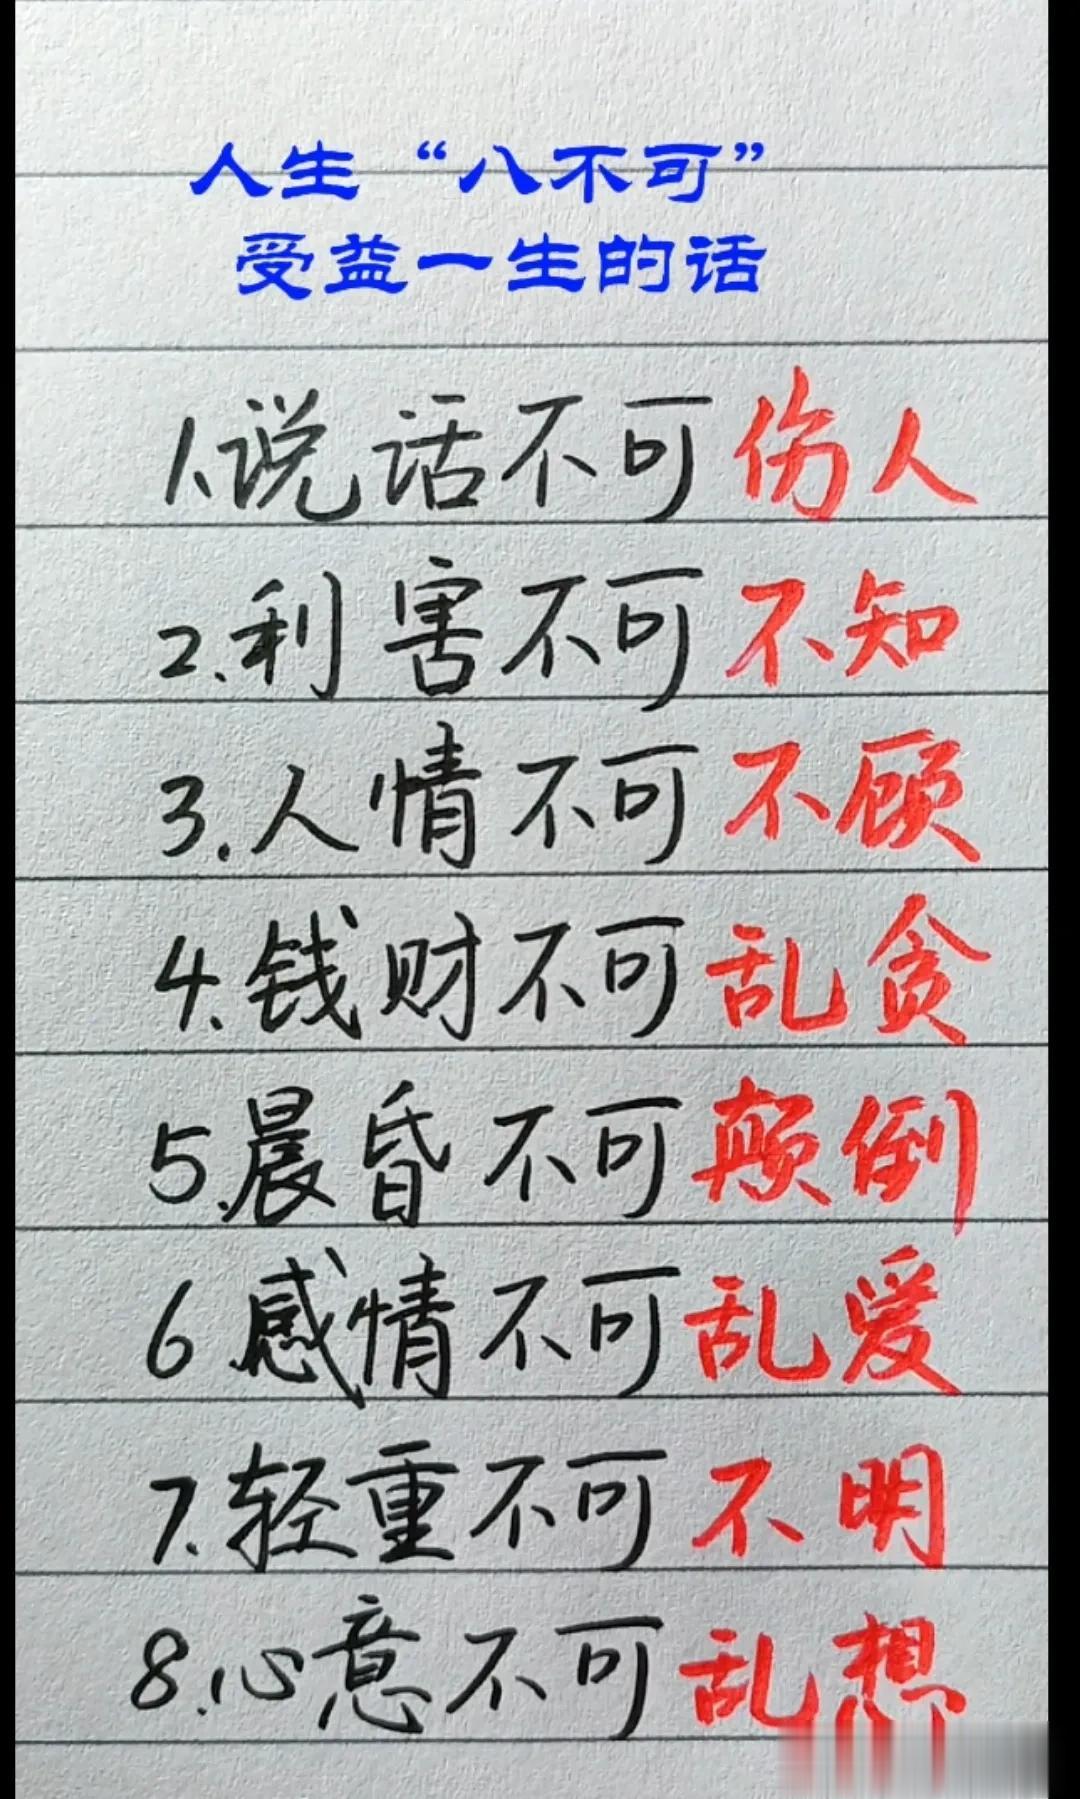 人生“八不可”
受益一生的话
1.说话不可伤人
2.利害不可不知
3.人情不可不顾
4.钱财不可乱贪
5.晨昏不可颠倒
6.感情不可乱爱
7.轻重不可不明
8.心意不可乱想